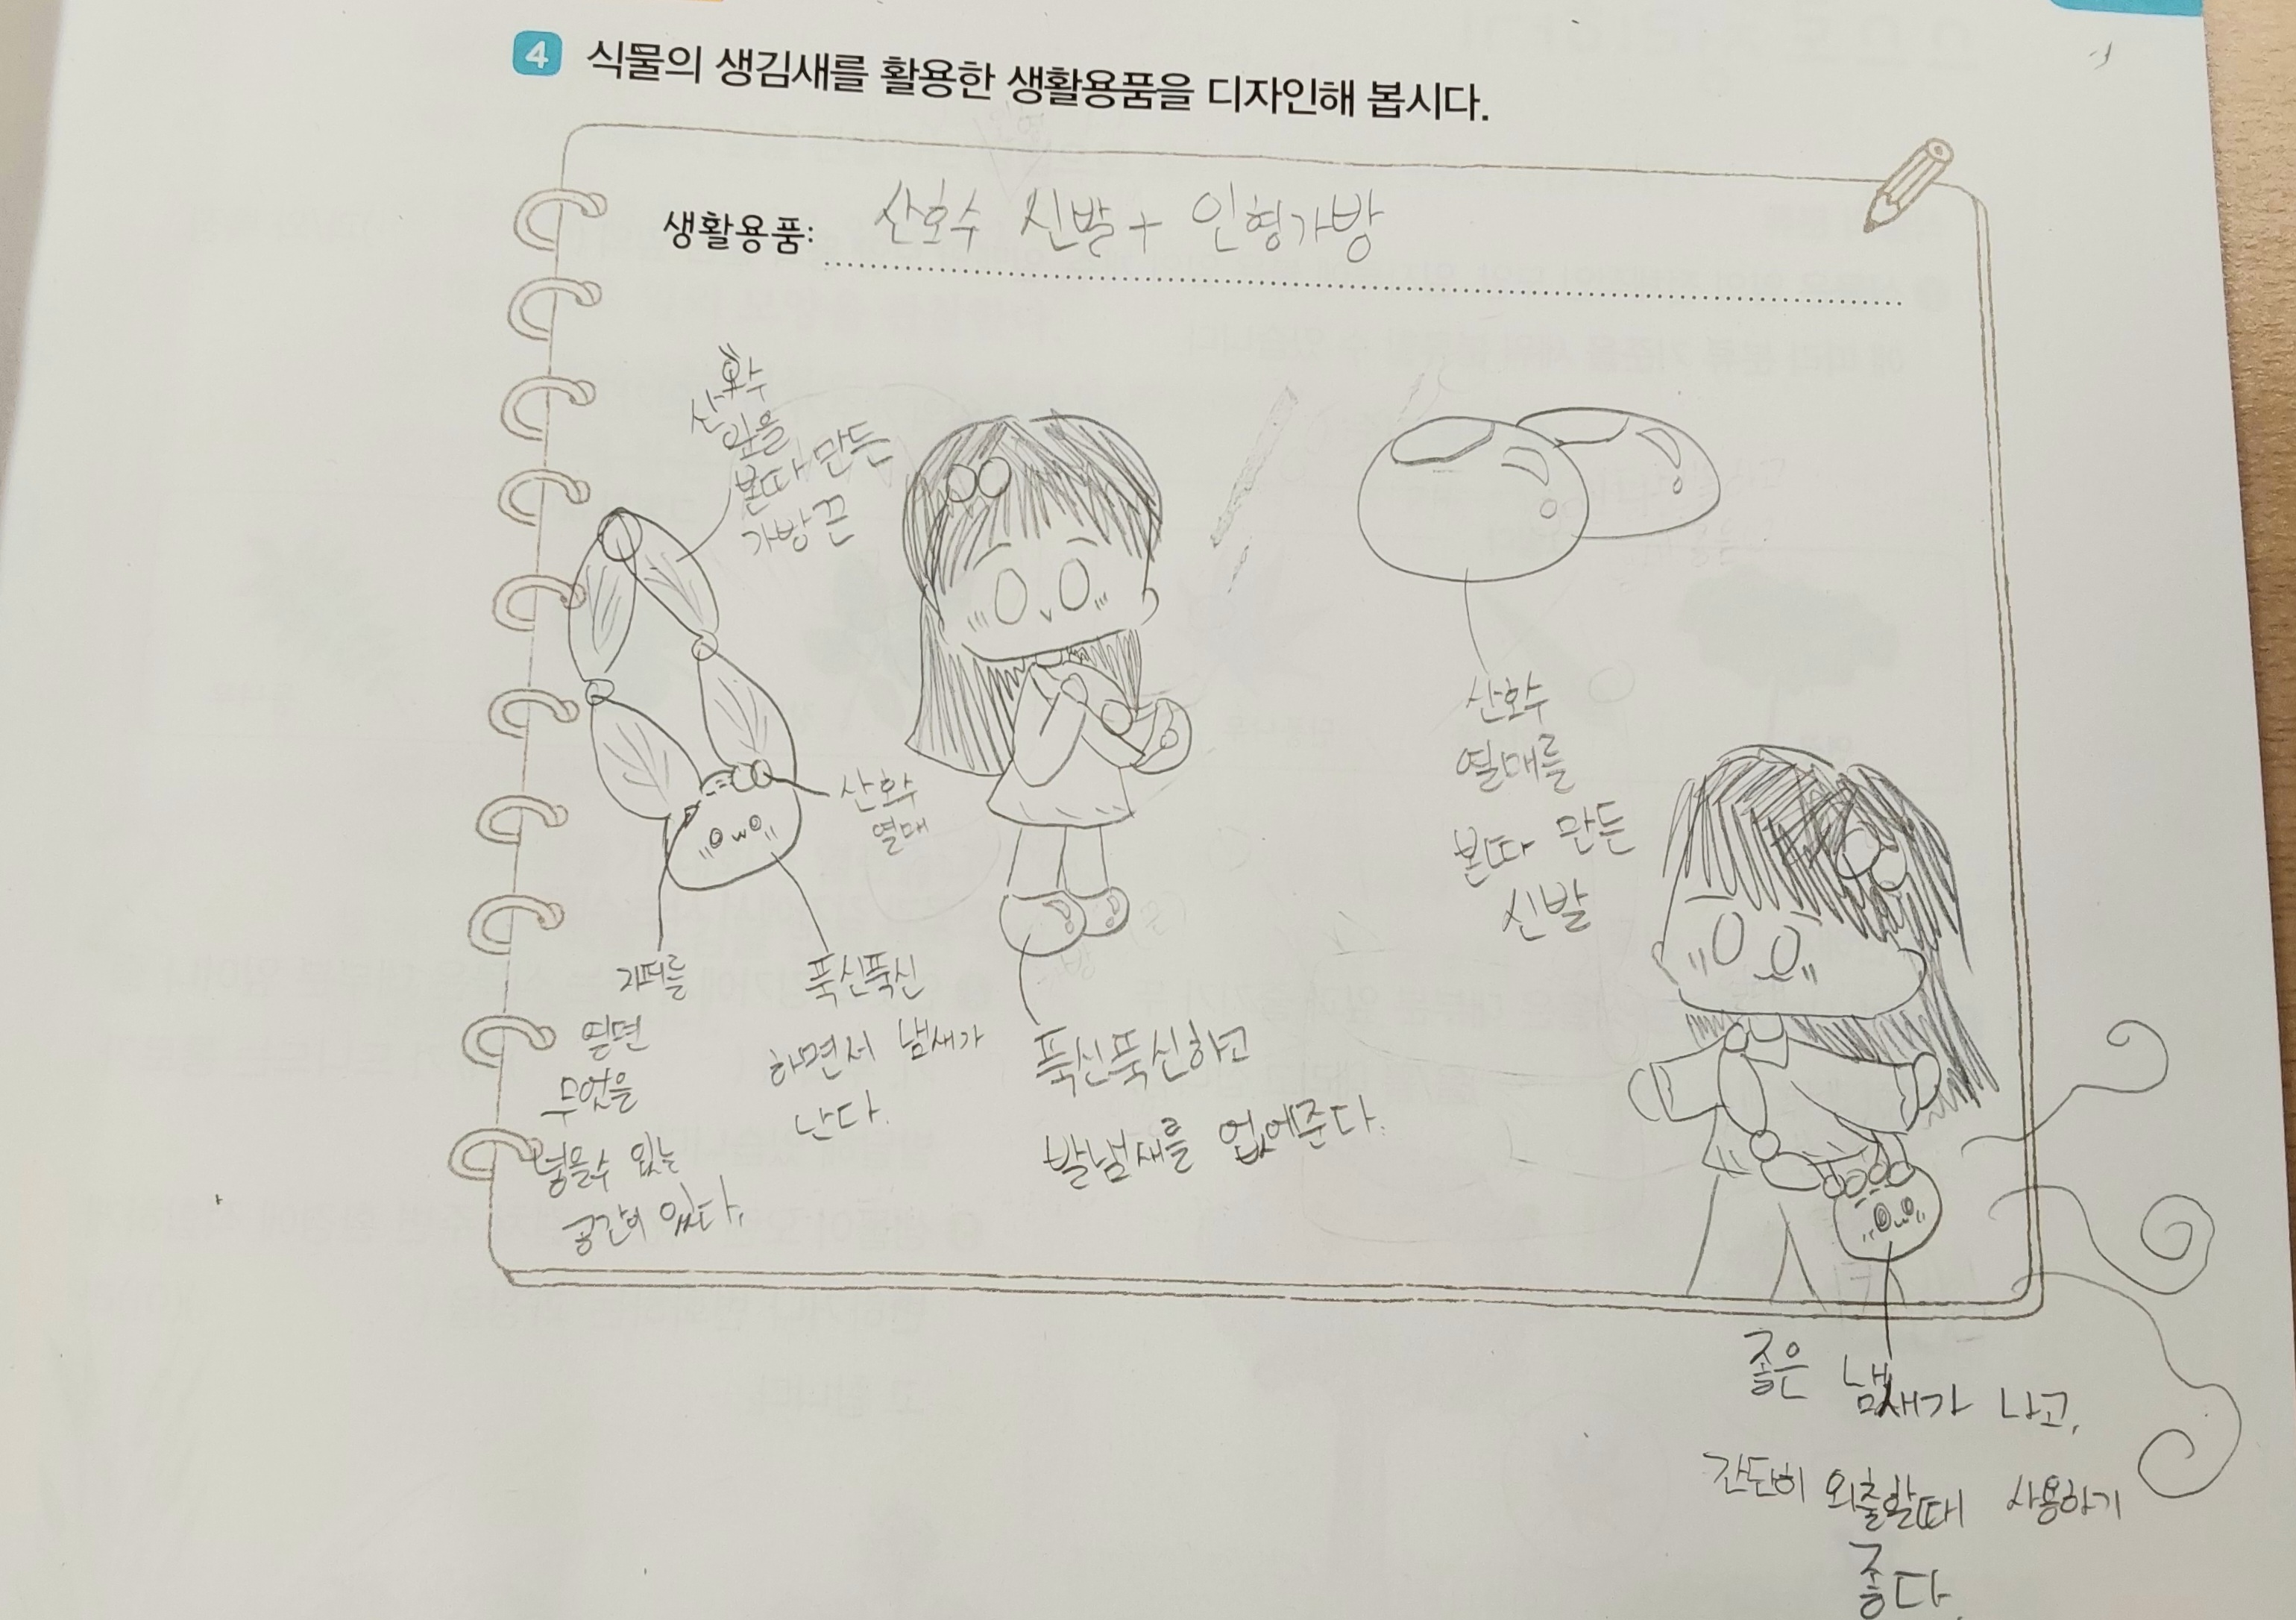 4 식물의 생김새를 활용한 생활용품을 디자인해 봅시다.
생활용품: 산호수 신발 + 인형가방
산호수
잎을
본따 만든
가방끈
산호수
열매
지퍼를
열면
무엇을
넣을수 있는
공간이 있다.
푹신푹신
하면서 냄새가
난다.
푹신푹신하고
발냄새를 없에준다.
산호수
열매를
본따 만든
신발
좋은 냄새가 나고,
간단히 외출할때 사용하기
좋다.